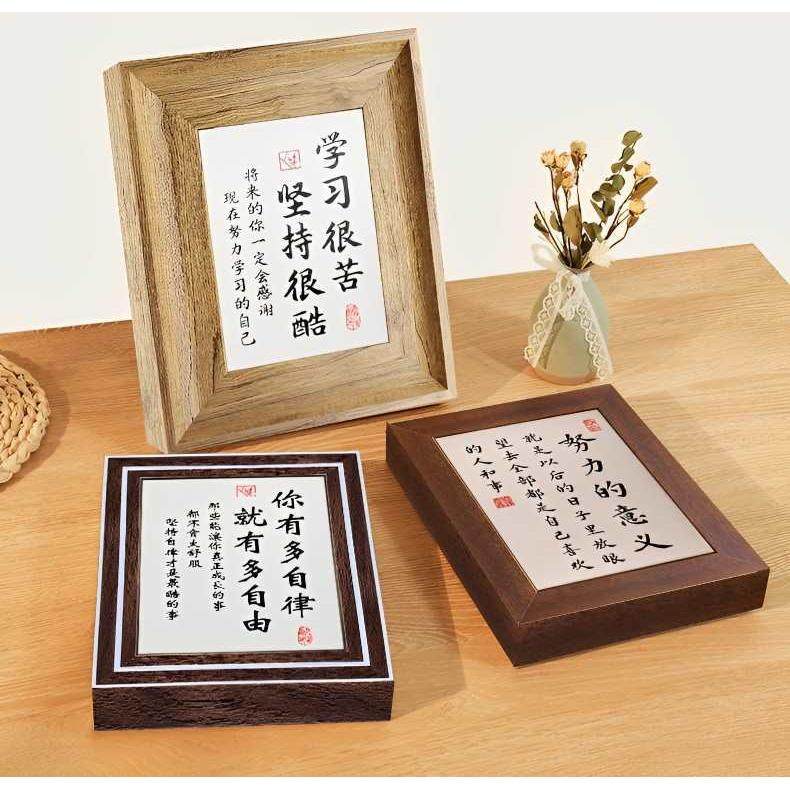 学习很苦
坚持很酷
将来的你一定会感谢
现在努力学习的自己
你有多自律
就有多自由
那些能讓你真正成长的事
都不会太舒服
坚持自律才是最酷的事
努力的意义
就是以后的日子里放眼
望去全部都是自己喜欢
的人和事